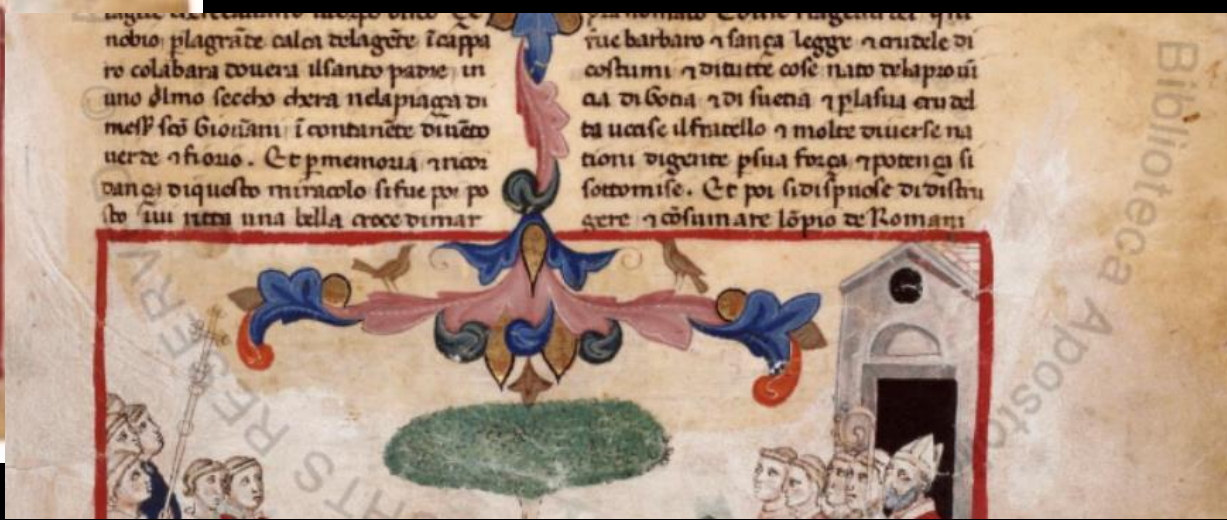 nobio plagrãte calca telagẽte ĩcappa
ro colabara douera ilsanto padre in
uno olmo seccho chera nelapiaça di
mess̃ sc̃o Giouãni ĩ contanẽte diuẽto
uerde ⁊ fiorio. Et p memoria ⁊ ricor
dança diquesto miracolo si fue poi po
sto iui ritta una bella croce dimar
fue barbaro ⁊ sança legge ⁊ crudele di
costumi ⁊ ditutte cose nato delaproui
cia di Gotia ⁊ di suetia ⁊ plasua crudel
ta uccise ilfratello ⁊ molte diuerse na
tioni digente psua força ⁊ potença si
sottomise. Et poi sidispuose didistru
gere ⁊ cõsumare lõpio de Romani
Biblioteca Aposto
RESERV
HTS